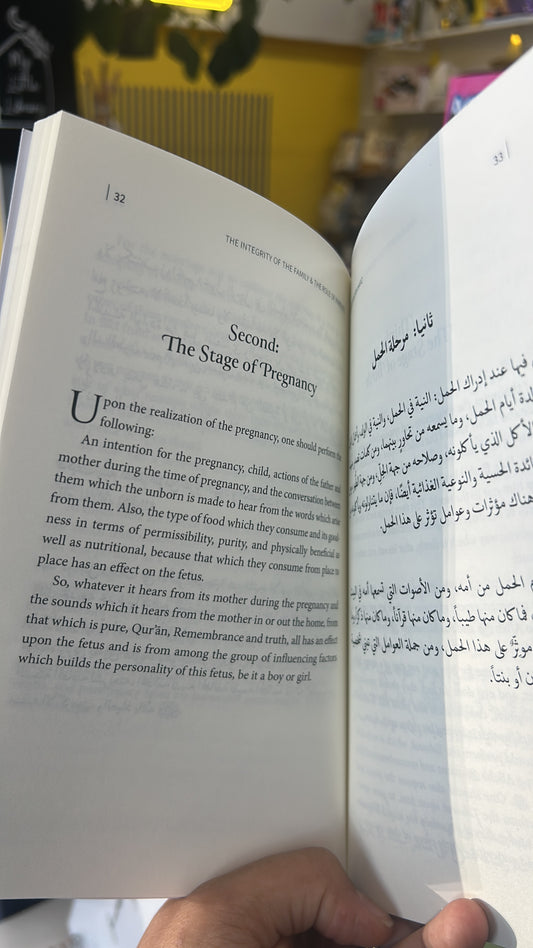 My
Little
Library
32
THE INTEGRITY OF THE FAMILY & THE ROLE OF
Second:
The Stage of Pregnancy
Upon the realization of the pregnancy, one should perform the
following:
An intention for the pregnancy, child, actions of the father and
mother during the time of pregnancy, and the conversation between
them which the unborn is made to hear from the words which arise
from them. Also, the type of food which they consume and its good-
ness in terms of permissibility, purity, and physically beneficial as
well as nutritional, because that which they consume from place to
place has an effect on the fetus.
So, whatever it hears from its mother during the pregnancy and
the sounds which it hears from the mother in or out the home, from
that which is pure, Qur'ān, Remembrance and truth, all has an effect
upon the fetus and is from among the group of influencing factors
which builds the personality of this fetus, be it a boy or girl.
33
ثانيا: مرحلة الحمل
فيها عند إدراك الحمل: النية في الحمل، والنية في
أيام الحمل، وما يسمعه من تحاور بينهما، ومن كلمات
الأكل الذي يأكلونه، وصلاحه من جهة الحل، ومن جهة
الحسية والنوعية الغذائية أيضًا، فإن ما يتناولونه
هناك مؤثرات وعوامل تؤثر على هذا الحمل.
الحمل من أمه، ومن الأصوات التي تسمعها أمه في
فما كان منها طيباً، وما كان منها قرآناً، وما كان منها
مؤثر على هذا الحمل، ومن جملة العوامل التي تبني
أو بنتاً.